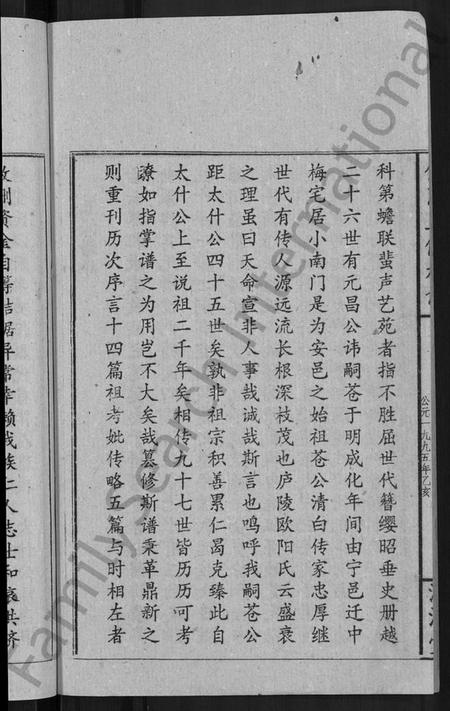 科第蟾联蜚声艺苑者指不胜屈世代簪缨昭垂史册越
二十六世有元昌公讳嗣苍于明成化年间由宁邑迁中
梅宅居小南门是为安邑之始祖苍公清白传家忠厚继
世代有传人源远流长根深枝茂也庐陵欧阳氏云盛衰
之理虽曰天命宣非人事哉诚哉斯言也鸣呼我嗣苍公
距太什公四十五世矣孰非祖宗积善累仁曷克臻此自
太什公上至说祖二千年矣相传九十七世皆历历可考
潦如指掌谱之为用岂不大矣哉篡修斯谱秉革鼎新之
则重刊历次序言十四篇祖考妣传略五篇与时相左者
公元一九九五年乙亥
资金自筹拮据异常幸赖我族仁人志士和衷共济
Family Search International